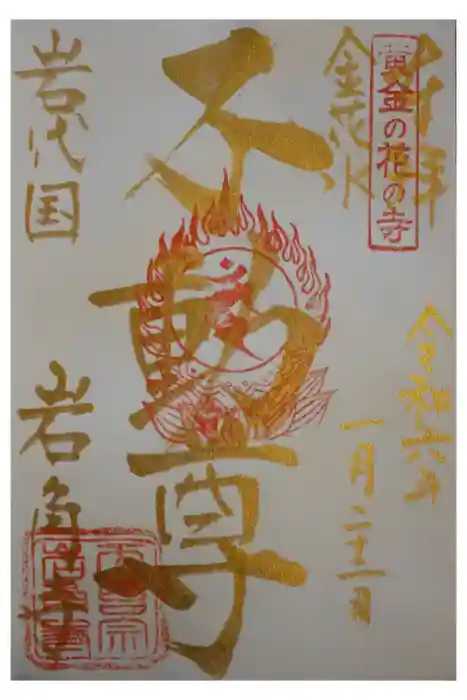 奉拝
黄金の花の寺
令和六年
一月二十一日
不動尊
岩代国
岩角寺